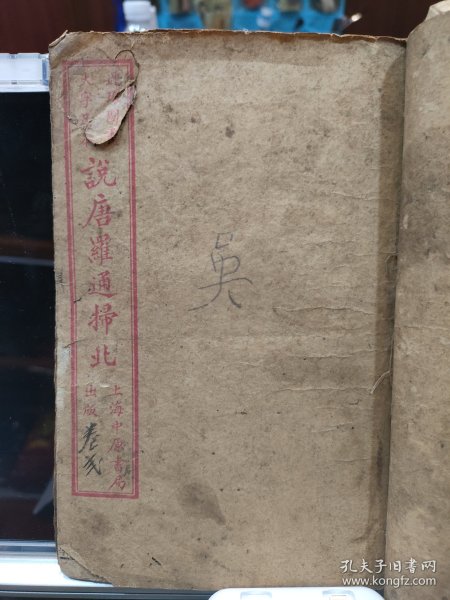 說唐羅通掃北
上海中原書局
出版
卷貳
吳
孔夫子旧书网
www.kongfz.com